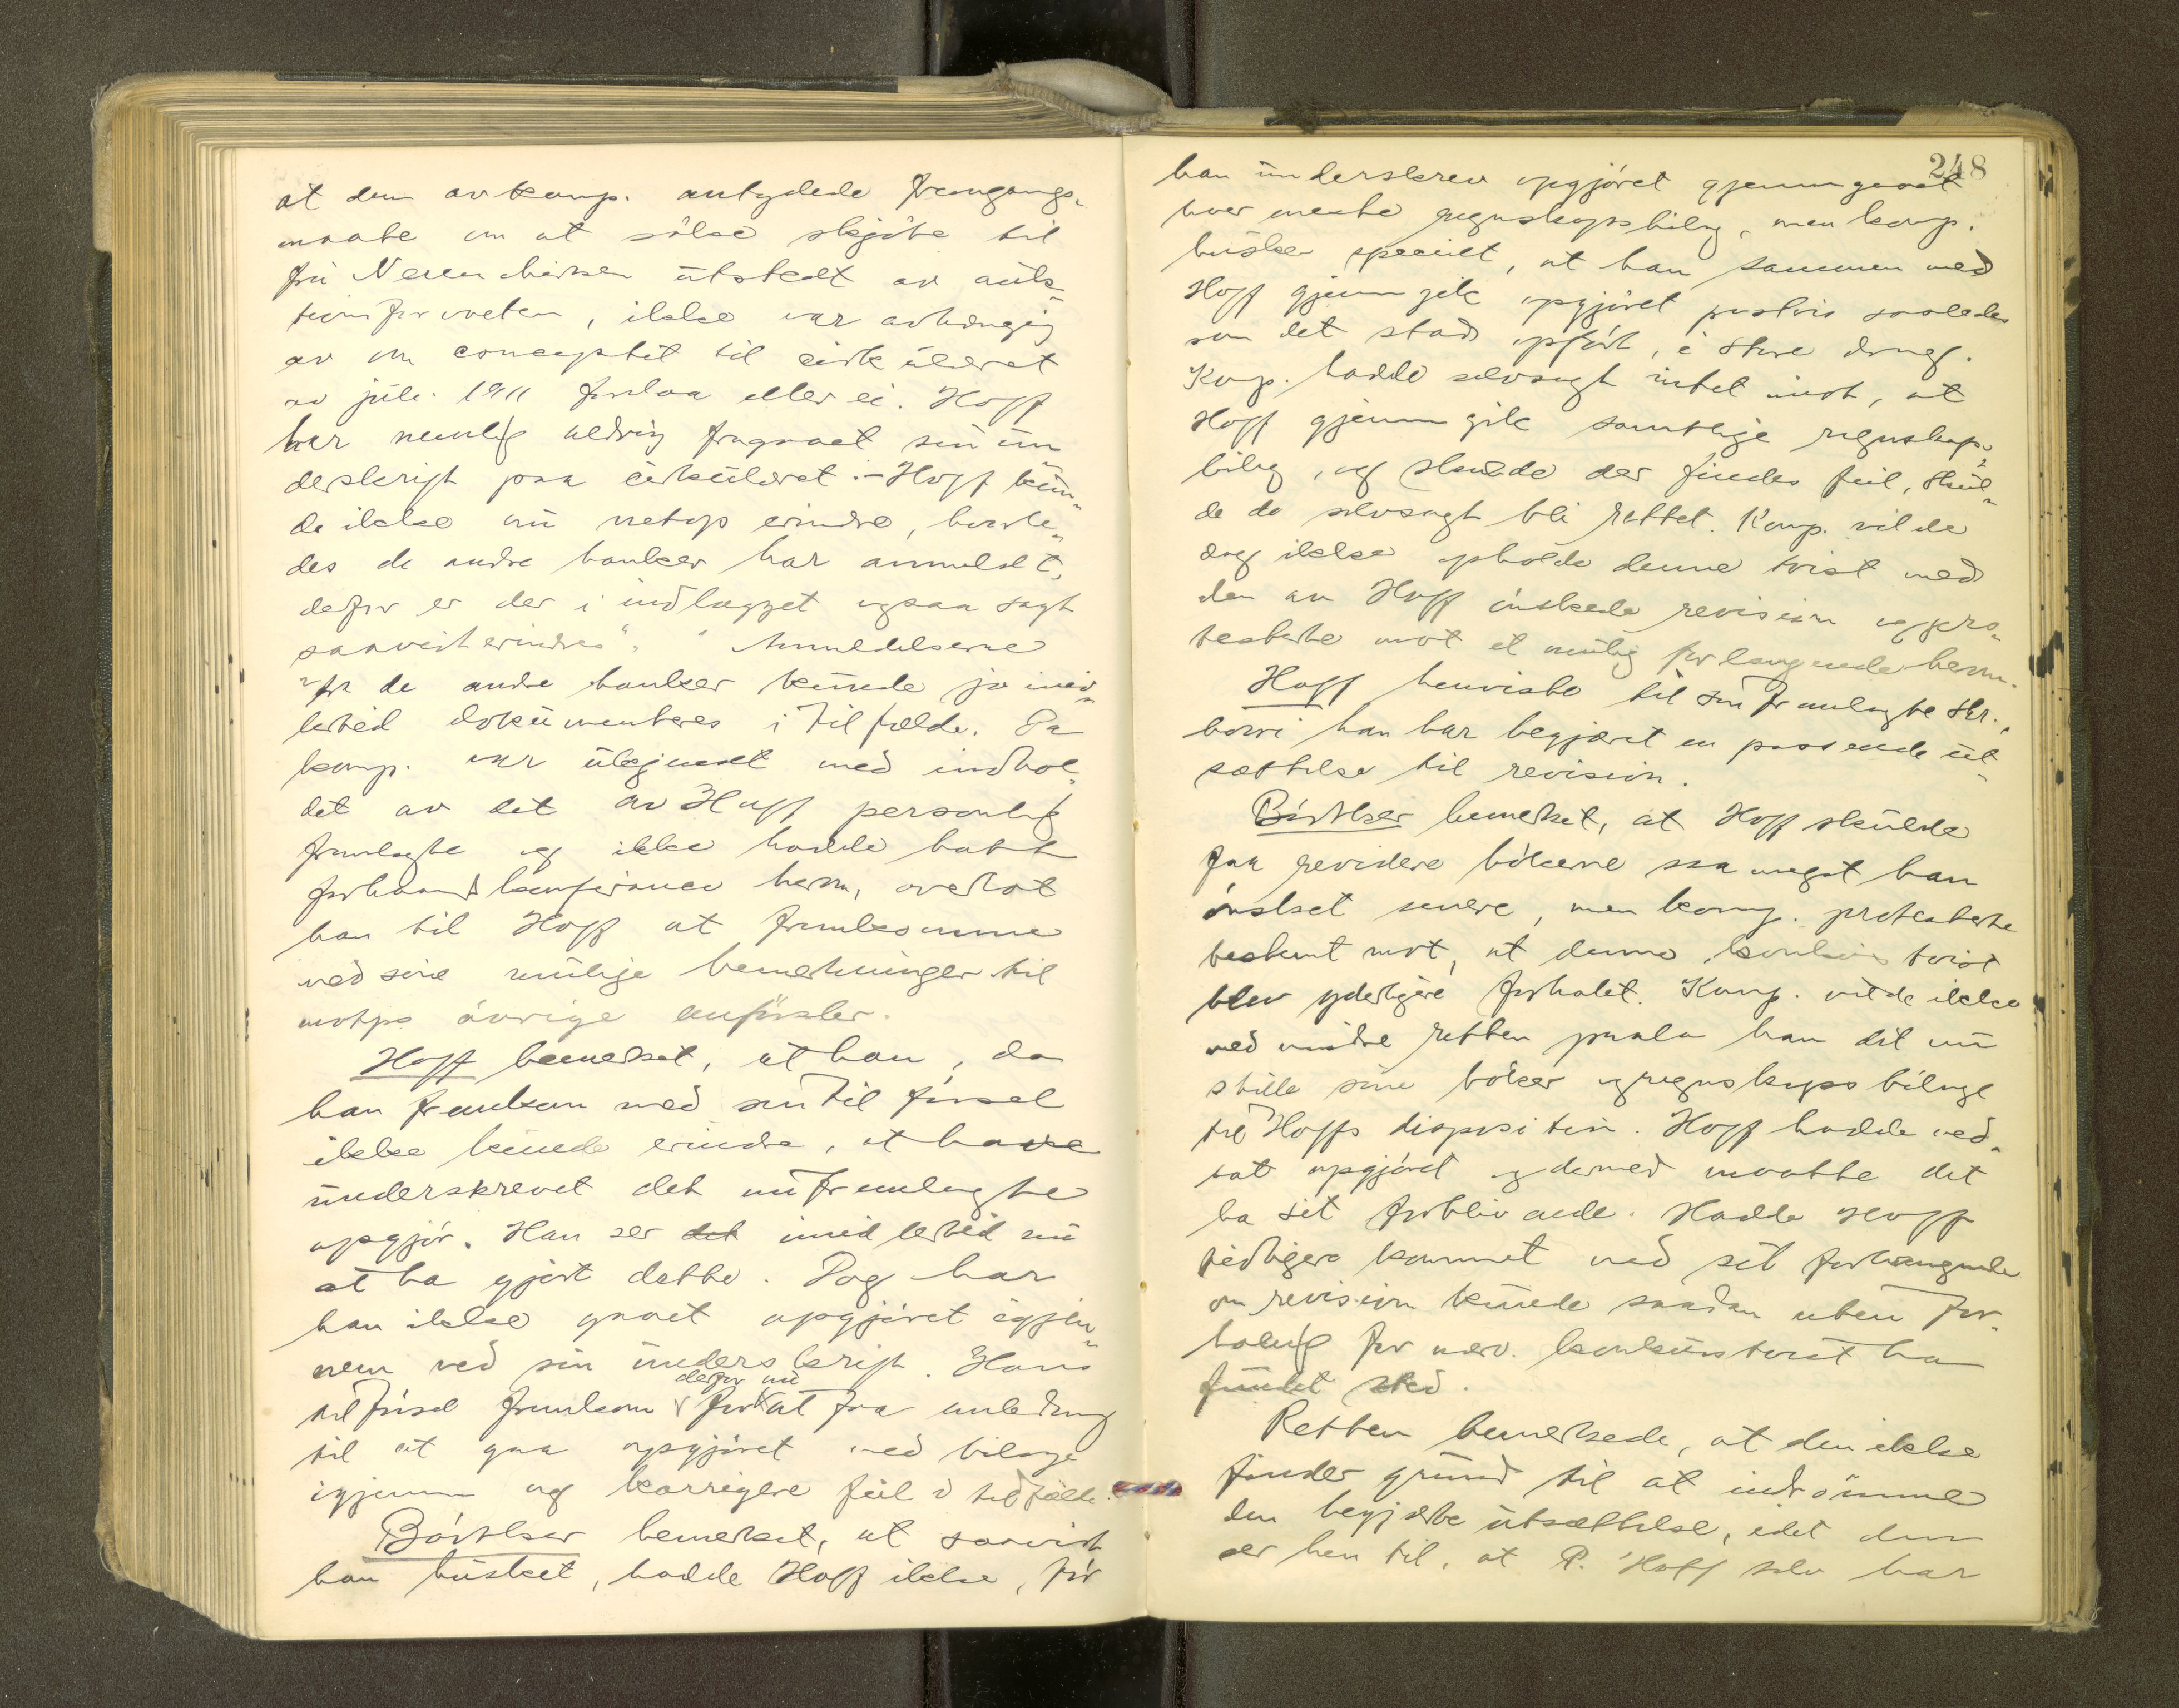 at den av komp. antydede fremgangs-
maate om at söke skjöte til
fru Neuenkirken utstedt av auk-
tionsforvalten, ikke var avhængig
av om conceptet til cirkulæret
av juli 1911 forelaa eller ei. Hoff
har nemlig aldrig fragaaet sin un
derskrift paa cirkulæret. - Hoff kun-
de ikke nu netop erindre, hvorle-
des de andre banker har anmeldt,
derfor er der i indlægget ogsaa sagt
"saavidt erindres". Anmeldelserne
fra de andre banker kunde jo imid-
lertid dokumenteres i tilfælde. Da
komp. var ukjendt med indhol-
det av det av Hoff personlig
fremlagte og ikke hadde hatt
forhaandskonferance herom, overlot
han til Hoff at fremkomme
med sine mulige bemerkninger til
motps övrige anförsler.
Hoff bemerket, at han, da
han fremkom med sin tilförsel
ikke kunde erindre, at have
underskrevet det nu fremlagte
opgjör. Han ser det imidlertid nu
at ha gjort dette. Dog har
han ikke gaaet opgjöret igjen-
nem ved sin underskrift. Hans
derfor nu
tilförsel fremkom for at faa anledning
til at gaa opgjöret med bilage
igjennem og korrigere feil i tilfælde.
Bödtker bemerket, at saavidt
han husket, hadde Hoff ikke, för
248
han underskrev opgjöret gjennemgaaet
hver eneste regnskapsbilag, men komp.
husker specielt, at han sammen med
Hoff gjennemgik opgjöret postvis saaledes
som det stod opfört, i store drag.
Komp. hadde selvsagt intet imot, at
Hoff gjennemgik samtlige regnskaps-
bilag, og skulde der findes feil, skul-
de de selvsagt bli rettet. Komp. vilde
dog ikke opholde denne tvist med
den av Hoff önskede revision og pro-
testerte mot et mulig forlangende herom.
Hoff henviste til sin fremlagte skr.,
hvori han har begjæret en passende ut-
sættelse til revision.
Bödtker bemerket, at Hoff skulde
faa revidere bökerne saa meget han
önsket senere, men komp. protesterte
bestemt mot, at denne konkurs tvist
blev yderligere forhalet. Komp. vilde ikke
med mindre retten paala han det nu
stille sine böker og regnskapsbilage
til Hoffs disposition. Hoff hadde ved-
tat opgjöret og dermed maatte det
ha sit forblivende. Hadde Hoff
tidligere kommet med sit forlangende
om revision kunde saadan uten for-
haling for nærv. konkurstvist ha
fundet sted.
Retten bemerkede, at den ikke
finder grund til at indrömme
den begjærte utsættelse, idet den
ser hen til, at P. Hoff selv har